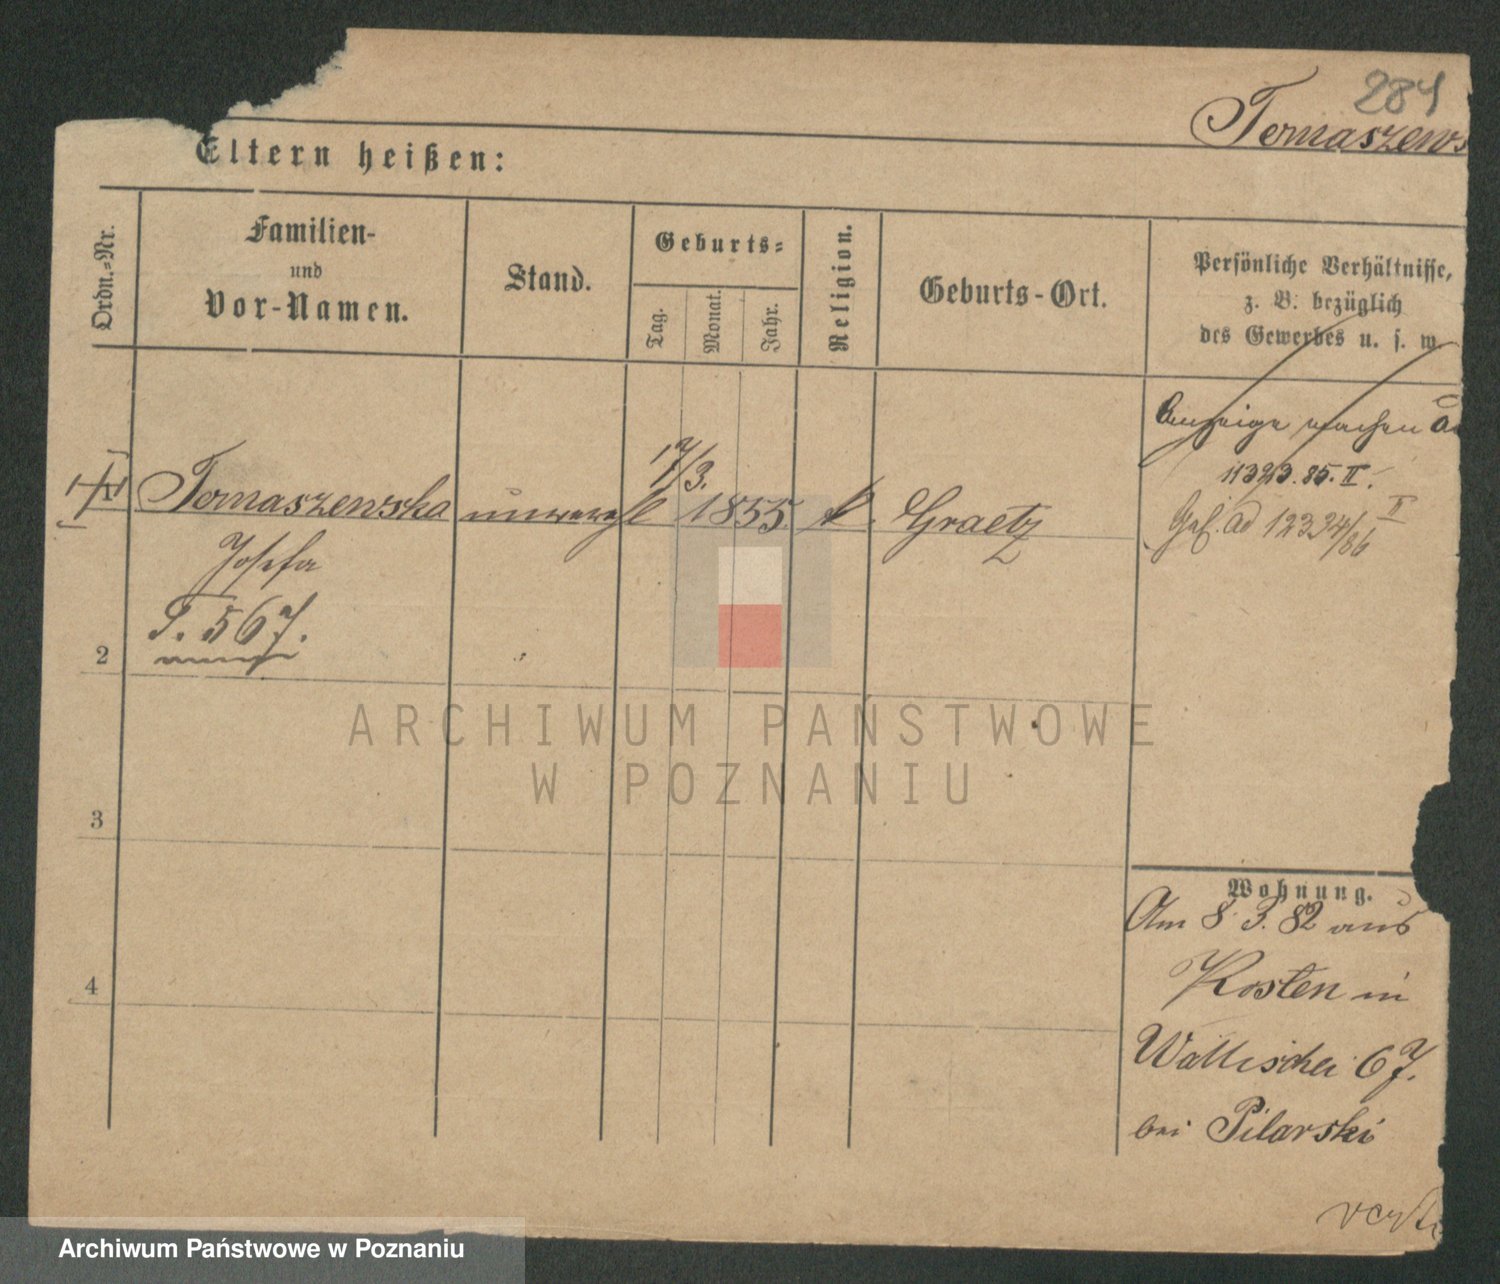 284
Tomaszews
Eltern heißen:
Ordn.-Nr.
Familien-
und
Vor-Namen.
Stand.
Geburts-
Tag.
Monat.
Jahr.
Religion.
Geburts-Ort.
Persönliche Verhältnisse,
z. B. bezüglich
des Gewerbes u. s. w.
Anzeige machen
11323.85.II.
17/3.
Tomaszewska
unverehl
1855
k.
Graetz
ad 12394/86 II
Josefa
S. 567.
2
3
4
Wohnung.
Am 8 3. 82 aus
Kosten in
Wallischei 67.
bei Pilarski
ARCHIWUM PAŃSTWOWE
W POZNANIU
Archiwum Państwowe w Poznaniu